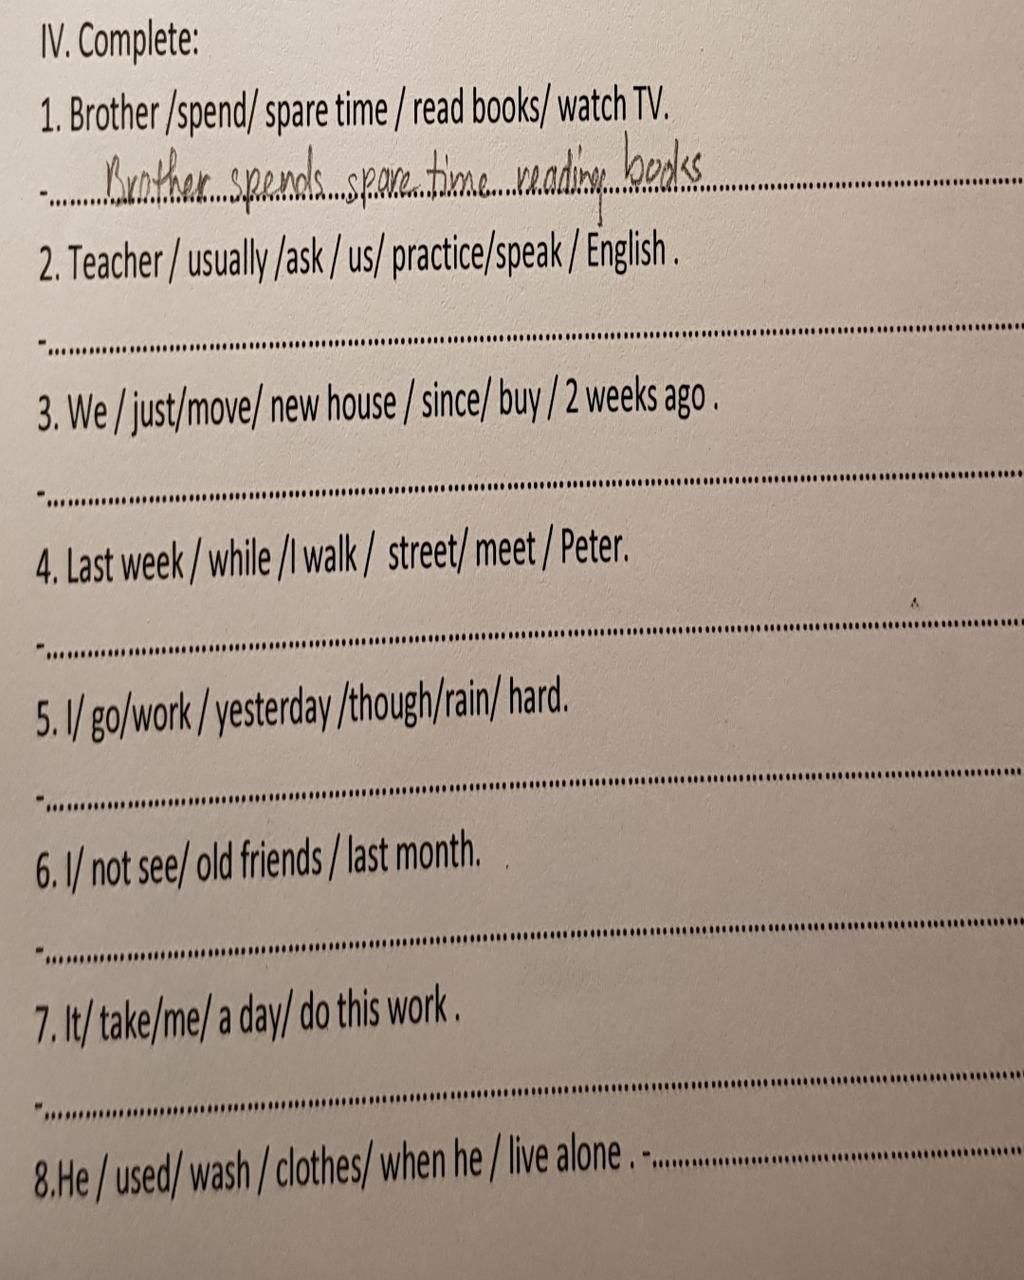 IV. Complete:
1. Brother /spend/ spare time / read books/ watch TV.
-.......Brother spends spare time reading books.......
2. Teacher / usually /ask / us/ practice/speak / English .
-.......
3. We / just/move/ new house / since/ buy / 2 weeks ago .
-.......
4. Last week / while /I walk / street/ meet / Peter.
-.......
5. I/ go/work / yesterday /though/rain/ hard.
-.......
6. I/ not see/ old friends / last month.
-.......
7. It/ take/me/ a day/ do this work .
-.......
8.He / used/ wash / clothes/ when he / live alone . -.......